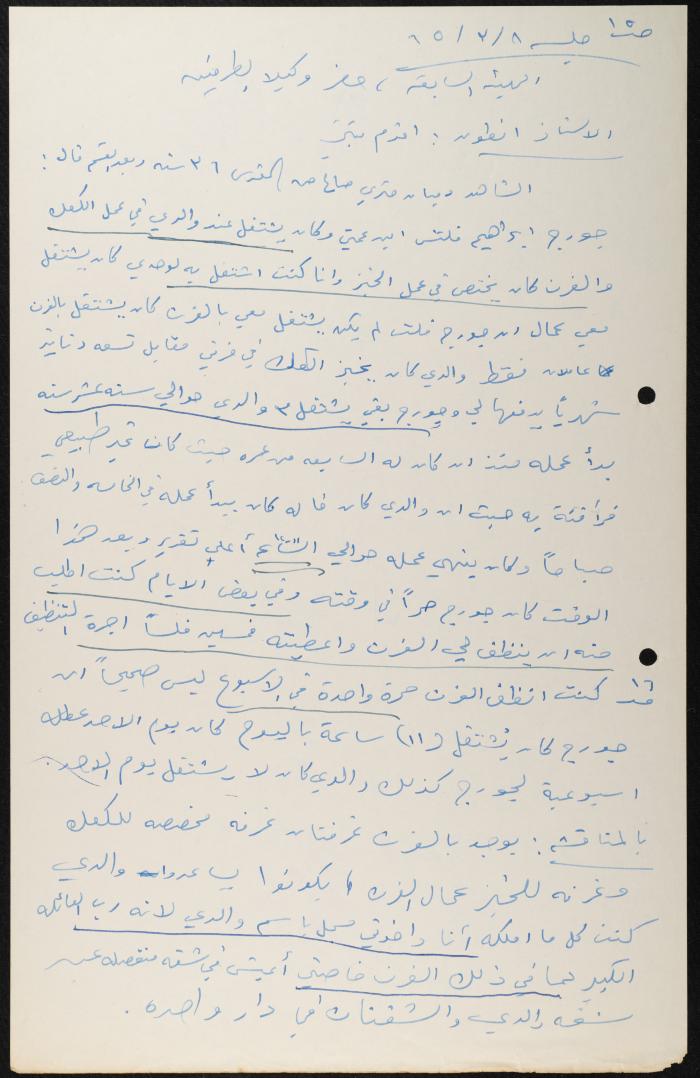 جلسه ٨/٣/٦٥
الهيئة السابقة ، حضر وكيلا الطرفين
الاستاذ انطون : اقدم بينتي
الشاهد متري صالح من القدس ٣٦ سنه وبعد القسم قال :
جورج ابراهيم فلتس ابن عمتي وكان يشتغل عند والدي في عمل الكعك
والفرن كان يختص في عمل الخبز وانا كنت اشتغل به لوحدي كان يشتغل
معي عمال ان جورج فلتس لم يكن يشتغل معي بالفرن كان يشتغل بالفرن
عاملان فقط والدي كان يخبز الكعك في فرني مقابل تسعه دنانير
شهرياً يدفعها لي وجورج بقي يشتغل مع والدي حوالي سته عشر سنه
بدأ عمله منذ ان كان له السابعه من عمره حيث كان غير طبيعي
فرأفة به حيث ان والدي كان خاله كان يبدأ عمله في الخامسه والنصف
صباحاً وكان ينهي عمله حوالي التاسعة أعلى تقدير وبعد هذا
الوقت كان جورج حراً في وقته وفي بعض الايام كنت اطلب
منه ان ينظف لي الفرن واعطيته خمسين فلساً اجرة التنظيف
كنت انظف الفرن مرة واحدة في الاسبوع ليس صحيحاً ان
جورج كان يشتغل (١١) ساعة باليوم كان يوم الاحد عطله
اسبوعية لجورج كذلك والدي كان لا يشتغل يوم الاحد .
بالمناقشه : يوجد بالفرن غرفتان غرفه مخصصه للكعك
وغرفه للخبز عمال الفرن يكونوا يساعدوا والدي
كنت كل ما املكه أنا واخوتي مسجل باسم والدي لانه رب العائله
الكبير بما في ذلك الفرن خاصتي أعيش في شقه منفصله عن
شقه والدي والشقتان في دار واحده .